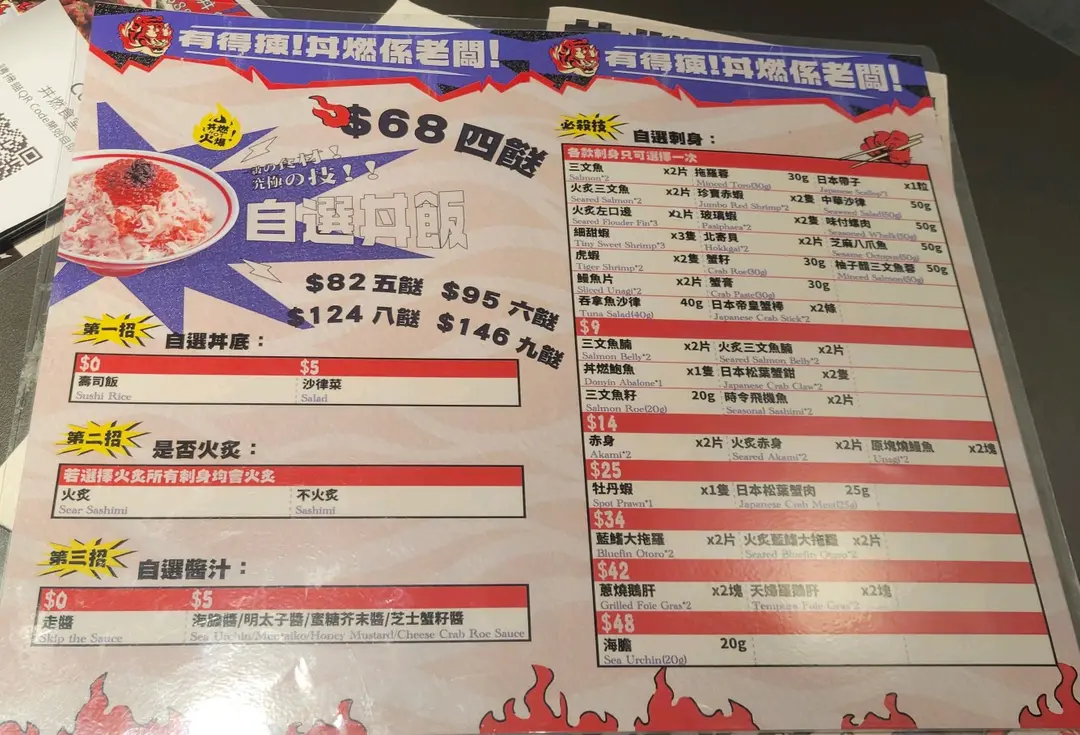 有得揀!丼燃係老闆! 有得揀!丼燃係老闆!
丼燃
火爆
$68 四餸
究極の技!!
自選丼飯
$82 五餸 $95 六餸
$124 八餸 $146 九餸
第一招 自選丼底:
$0 $5
壽司飯 沙律菜
Sushi Rice Salad
第二招 是否火炙:
若選擇火炙所有刺身均會火炙
火炙 不火炙
Sear Sashimi Sashimi
第三招 自選醬汁:
$0 $5
走醬 海膽醬/明太子醬/蜜糖芥末醬/芝士蟹籽醬
Skip the Sauce Sea Urchin/Mentaiko/Honey Mustard/Cheese Crab Roe Sauce
必殺技 自選刺身:
各款刺身只可選擇一次
三文魚 x2片 拖羅蓉 30g 日本帶子 x1粒
Salmon*2 Minced Toro(30g) Japanese Scallop*1
火炙三文魚 x2片 珍寶赤蝦 x2隻 中華沙律 50g
Seared Salmon*2 Jumbo Red Shrimp*2 Seaweed Salad(50g)
火炙左口邊 x2片 玻璃蝦 x2隻 味付螺肉 50g
Seared Flouder Fin*3 Pasiphaea*2 Seasoned Whelk(50g)
細甜蝦 x3隻 北寄貝 x2片 芝麻八爪魚 50g
Tiny Sweet Shrimp*3 Hokkgai*2 Sesame Octopus(50g)
虎蝦 x2隻 蟹籽 30g 柚子醋三文魚蓉 50g
Tiger Shrimp*2 Crab Roe(30g) Minced Salmon(50g)
鰻魚片 x2片 蟹膏 30g
Sliced Unagi*2 Crab Paste(30g)
吞拿魚沙律 40g 日本帝皇蟹棒 x2條
Tuna Salad(40g) Japanese Crab Stick*2
$9
三文魚腩 x2片 火炙三文魚腩 x2片
Salmon Belly*2 Seared Salmon Belly*2
丼燃鮑魚 x1隻 日本松葉蟹鉗 x2隻
Donyin Abalone*1 Japanese Crab Claw*2
三文魚籽 20g 時令飛機魚 x2片
Salmon Roe(20g) Seasonal Sashimi*2
$14
赤身 x2片 火炙赤身 x2片 原塊燒鰻魚 x2塊
Akami*2 Seared Akami*2 Unagi*2
$25
牡丹蝦 x1隻 日本松葉蟹肉 25g
Spot Prawn*1 Japanese Crab Meat(25g)
$34
藍鰭大拖羅 x2片 火炙藍鰭大拖羅 x2片
Bluefin Otoro*2 Seared Bluefin Otoro*2
$42
蔥燒鵝肝 x2塊 天婦羅鵝肝 x2塊
Grilled Foie Gras*2 Tempura Foie Gras*2
$48
海膽 20g
Sea Urchin(20g)